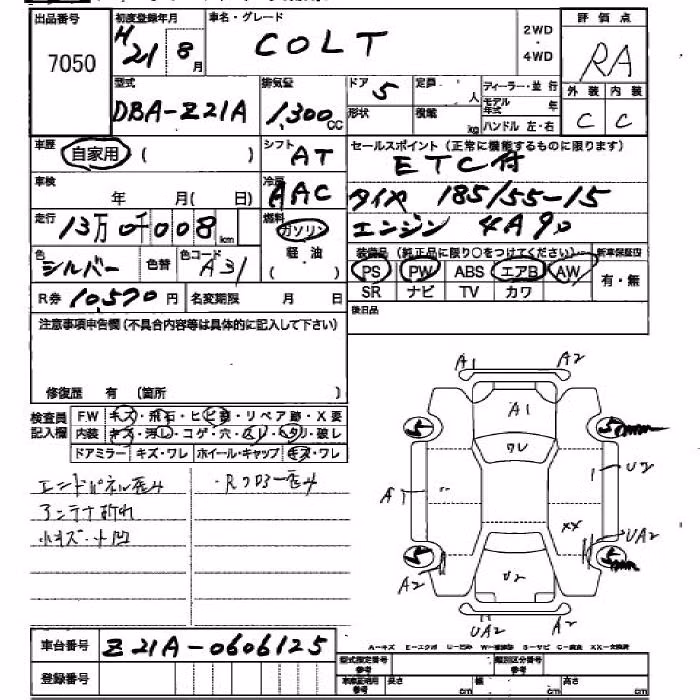 出品番号 初度登録年月 車名・グレード 評価点
7050 H21 8月 COLT 2WD・4WD RA
型式 排気量 ドア 定員 ディーラー・並行 外装 内装
DBA-Z21A 1,300CC 5 人 モデル年式 年 C C
形状 積載 kg ハンドル 左・右
車歴 自家用 ( ) シフト AT セールスポイント (正常に機能するものに限ります)
ETC付
車検 年 月( 日) 冷房 AAC タイヤ 185/55-15
走行 13万0千008km 燃料 ガソリン エンジン 4A90
軽・油 ( ) 装備品 (純正品に限り○をつけてください) 新車保証書
色 シルバー 色替 色コード A31 PS PW ABS エアB AW 有・無
R券 10,570円 名変期限 月 日 SR ナビ TV カワ
後日品
注意事項申告欄 (不具合内容等は具体的に記入して下さい)
修復歴 有 (箇所 )
検査員記入欄 FW キズ・飛石・ヒビ・リペア跡・X要
内装 キズ・汚レ・コゲ・穴・スレ・ヘタリ・破レ
ドアミラー キズ・ワレ ホイール・キャップ キズ・ワレ
エンドパネル歪み ・Rフロアー歪み
アンテナ折れ
小キズ・小凹
A1 A2
A1
5 5
ワレ
A1 U2
XX
UA2
5 5
A2 U2
UA2 A2
車台番号 Z21A-0606125
A-キズ E-エクボ U-凹み S-サビ C-腐食 XX-交換済
登録番号 型式指定番号 類別区分番号
長さ cm 幅 cm 高さ cm